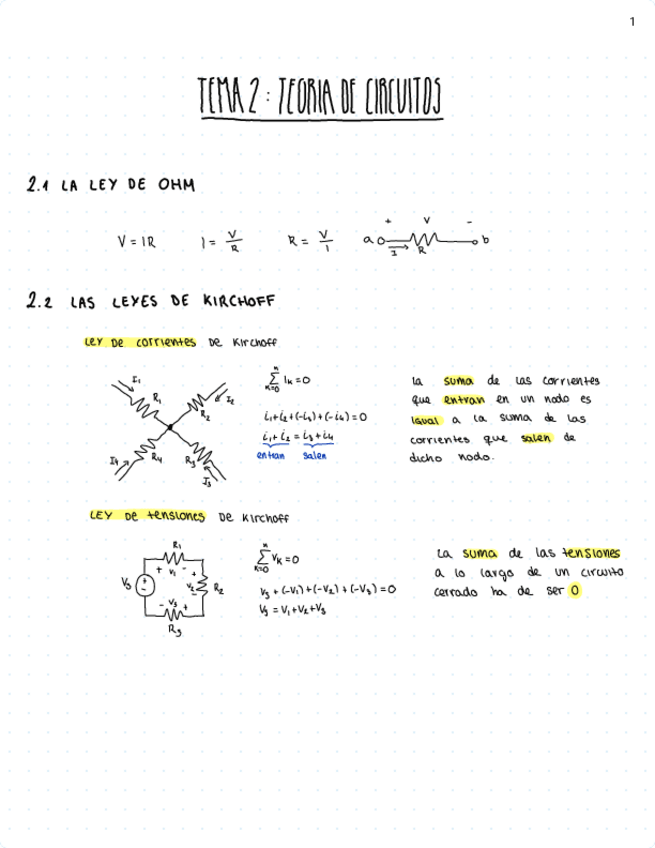 1
TEMA 2: TEORIA DE CIRCUITOS
2.1 LA LEY DE OHM
V = IR I = V/R R = V/I a + V - b
I R
2.2 LAS LEYES DE KIRCHOFF
LEY DE corrientes DE Kirchoff
I1 R1 R2 I2 R4 I4 R3 I3
n ∑ K=0 IK = 0
i1+i2+(-i3)+(-i4)=0
i1+i2 = i3+i4
entran salen
la suma de las corrientes
que entran en un nodo es
igual a la suma de las
corrientes que salen de
dicho nodo.
LEY DE tensiones DE Kirchoff
R1
+ V1 - +
VS + - V2 R2
- V3 + -
R3
n ∑ K=0 VK = 0
VS + (-V1) + (-V2) + (-V3) = 0
VS = V1+V2+V3
La suma de las tensiones
a lo largo de un circuito
cerrado ha de ser 0